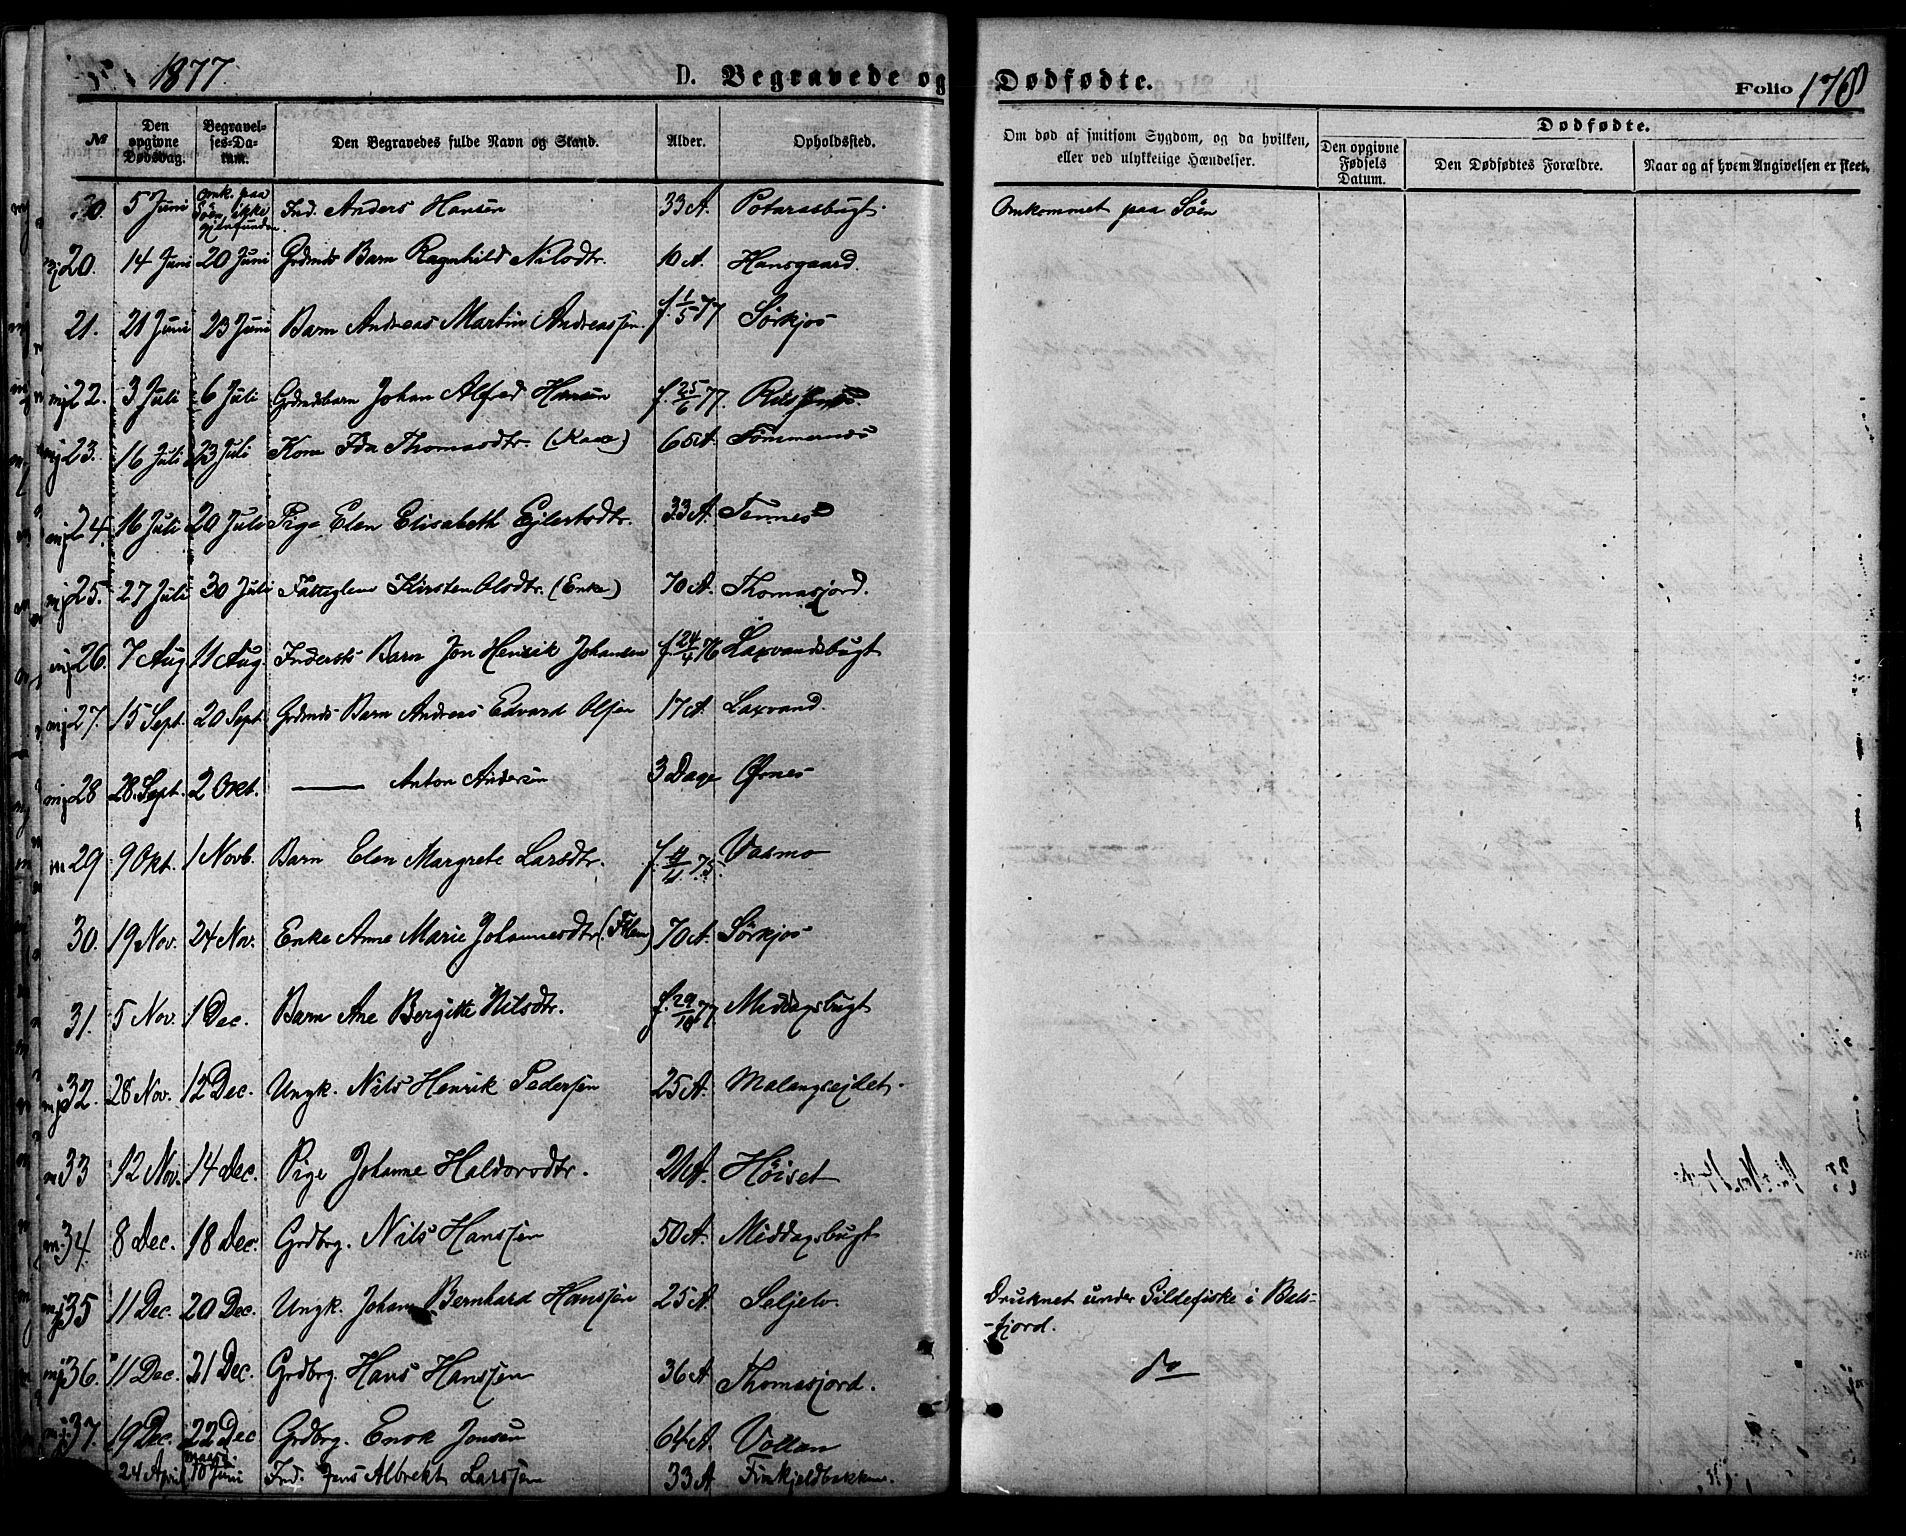 1877.
D. Begravede og Dødfødte.
Folio 178
№ Den opgivne Dødsdag. Begravelses-Datum. Den Begravedes fulde Navn og Stand. Alder. Opholdssted. Om død af smitsom Sygdom, og da hvilken, eller ved ulykkelige Hændelser. Dødfødte. Den opgivne Fødsels Datum. Den Dødfødtes Forældre. Naar og af hvem Angivelsen er skeet.
5 Juni omk. paa Søen ikke gjenfunden. Ind. Anders Hansen 33 A. Omkommet paa Søen
20. 14 Juni 20 Juni Grdmds Barn Ragnhild Nilsdtr. 10 A. Hansgaard.
21. 21 Juni 23 Juni Barn Andreas Martin Andreassen. f. 1/5 77 Sørkjos
22. 3 Juli 6 Juli Grdmdsbarn Johan Alfred Hansen f. 25/6 77.
23. 16 Juli 23 Juli Kone Ida Thomasdtr. 65 A. Tømmernes
24. 16 Juli 20 Juli Pige Elen Elisabeth Ejlertsdtr. 33 A. Tennes
25. 27 Juli 30 Juli Fattiglem Kirsten Olsdtr. (Enke) 70 A. Thomasjord.
26. 7 Aug 11 Aug. Indersts Barn Jon Henrik Johansen f. 24/4 76 Laxvandsbugt
27. 15 Sept. 20 Sept. Grdmds Barn Andreas Edvard Olsen 17 A. Laxvand.
28 28. Sept. 2 Okt. — Anton Andersen 3 Dage Ørnes
29. 9 Okt. 1 Novb. Barn Elen Margrete Larsdtr. Vasmo
30. 19 Nov. 24 Nov. Enke Anne Marie Johannesdtr. (Flem) 70 A. Sørkjos
31. 5 Nov. 1 Dec. Barn Ane Bergitte Nilsdtr. f. 29/10 77. Middagsbugt
32. 28 Nov. 12 Dec. Ungk. Nils Henrik Pedersen 25 A. Malangsejdet.
33 12 Nov. 14 Dec. Pige Johanne Haldorsdtr. 21 A. Høiset
34. 8 Dec. 18 Dec. Grdbrg. Nils Hanssen 50 A. Middagsbugt
35 11 Dec. 20 Dec. Ungk. Johan Bernhard Hanssen 25 A. Seljelv. Druknet under Sildefiske i Bals-
-fjord.
36. 11 Dec. 21 Dec. Grdbrg. Hans Hanssen 36 A. Thomasjord. do
37. 19 Dec. 22 Dec Grdbrg. Enok Jonsen 64 A. Vollan
24 April 10 Juni Ind. Jens Albrekt Larssen 33 A.